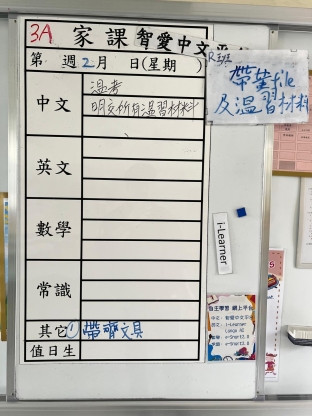 3A 家課智愛中文平
第 週 2月 日(星期 )
中文
温考
明交所有温習材料
英文
數學
常識
其它 ① 帶齊文具
值日生
R班
及温習材料
i-Learner
自主學習 網上平台